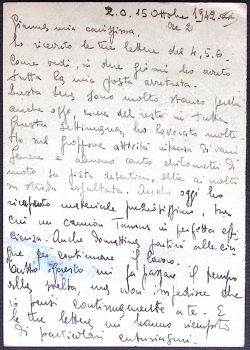 Z.O. 15 Ottobre 1942
Ore 2
Gianna mia carissima,
ho ricevuto le tue lettere del 4, 5, 6.
Come vedi, in due giorni ho avuto
tutta la mia posta arretrata.
Questa sera sono molto stanco perché
anche oggi, come del resto in tutta
questa settimana, ho lavorato molto
Ho nel gruppone attività intensa di vari
genere e almeno cento chilometri di
moto su pista desertica, oltre ai molti
su strada asfaltata. Anche oggi ho
ricuperato materiale, tra
cui un camion Taurus in perfetta effi
cienza. Anche domattina partirò alle cin
que per continuare il lavoro.
Tutto questo mi fa passare il tempo
alla svelta, ma non impedisce che
io pensi continuamente a te. E
le tue lettere mi hanno riempito
di particolari entusiasmi.